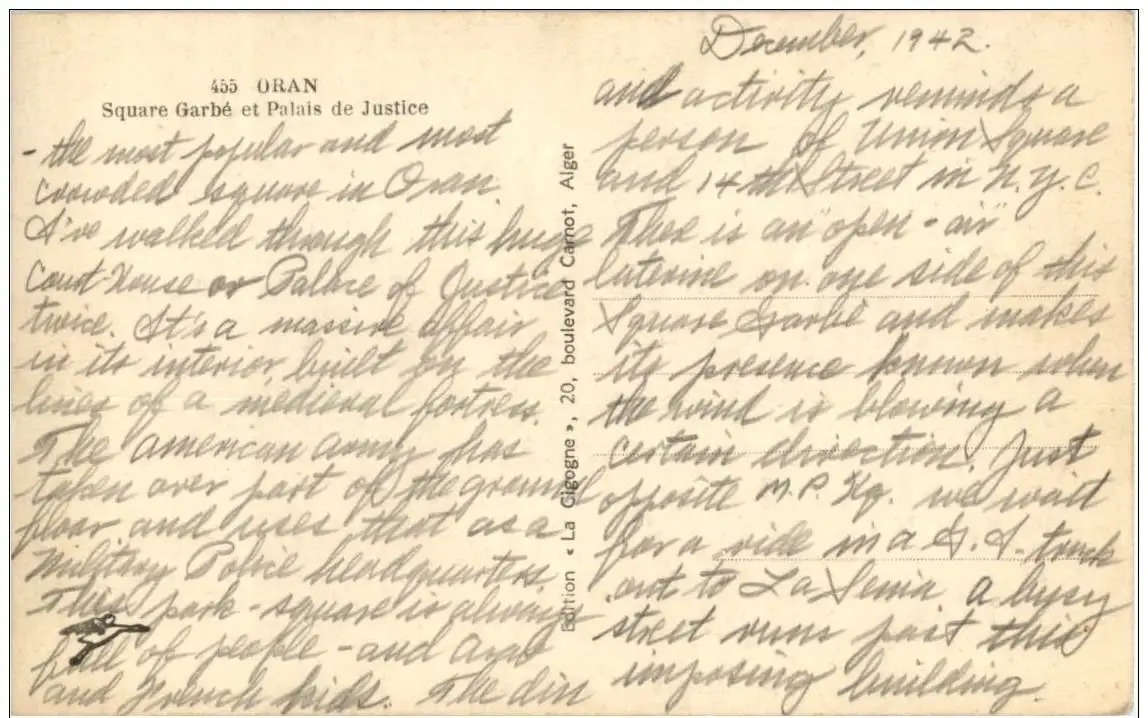 455 ORAN
Square Garbé et Palais de Justice
- the most popular and most
crowded square in Oran.
I've walked through this huge
Court-House or Palace of Justice
twice. It's a massive affair
in its interior, built on the
lines of a medieval fortress.
The American Army has
taken over part of the ground
floor and uses that as a
Military Police headquarters.
This park-square is always
full of people - and Arab
and French kids. The din
Edition « La Cigogne », 20, boulevard Carnot, Alger
December, 1942.
and activity reminds a
person of Union Square
and 14th Street in N.Y.C.
Ther is an "open-air"
laterine on one side of this
Square Garbé and makes
its presence known when
the wind is blowing a
certain direction. Just
opposite M.P. Hq. we wait
for a ride in a G.I. truck
out to La Senia. A busy
street runs past this
imposing building.